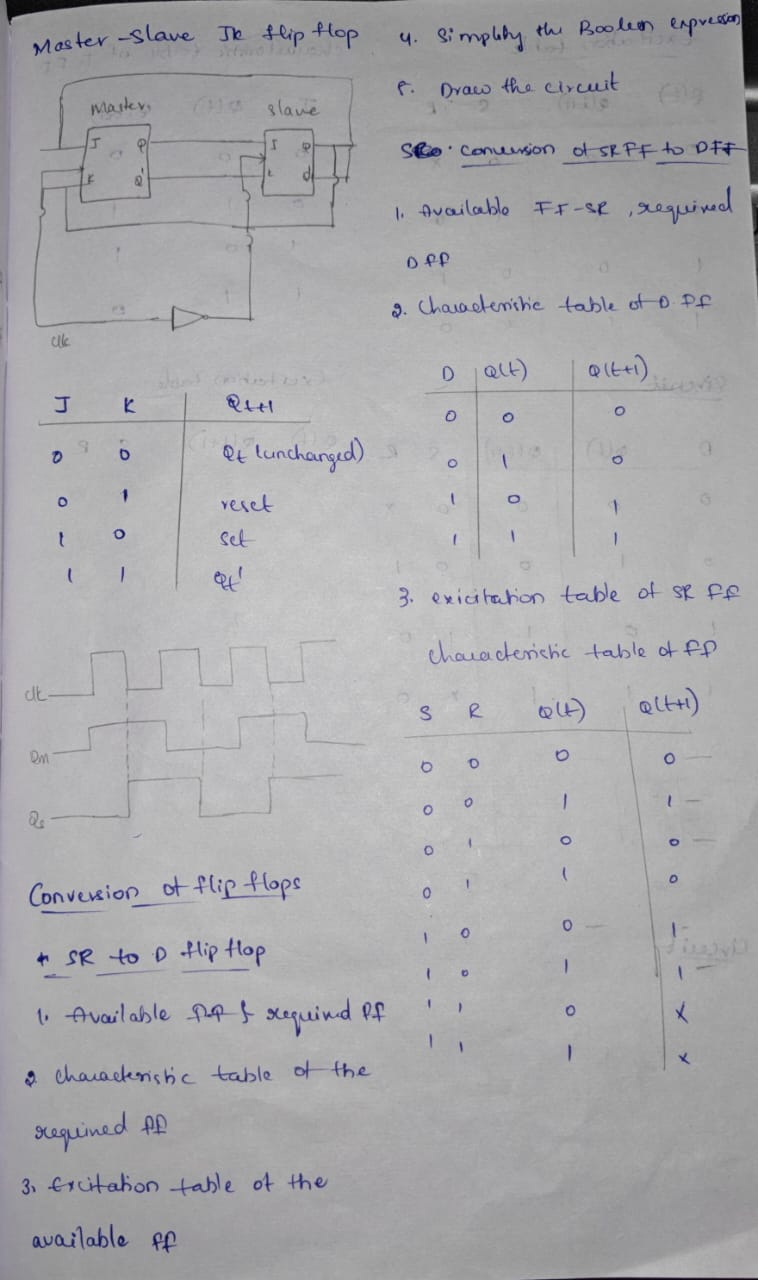 Master-Slave JK flip flop
Master
slave
J
Q
K
Q'
J
Q
clk
J K Qt+1
0 0 Qt (unchanged)
0 1 reset
1 0 set
1 1 Qt'
clk
Qm
Qs
Conversion of flip flops
* SR to D flip flop
1. Available FF & required FF
2 characteristic table of the
required FF
3. Excitation table of the
available FF
4. Simplify the Boolean expression
5. Draw the circuit
conversion of SR FF to D FF
1. Available FF-SR, required
D FF
2. Characteristic table of D FF
D Q(t) Q(t+1)
0 0 0
0 1 0
1 0 1
1 1 1
3. exicitation table of SR FF
characteristic table of FF
S R Q(t) Q(t+1)
0 0 0 0 —
0 0 1 1 —
0 1 0 0 —
0 1 1 0
1 0 0 — 1
1 0 1 1 —
1 1 0 X
1 1 1 X